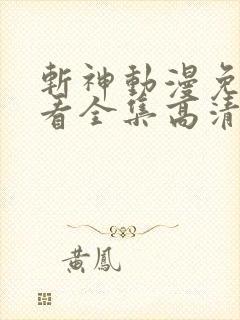 斬神動漫免
看全集高清
黃鳳